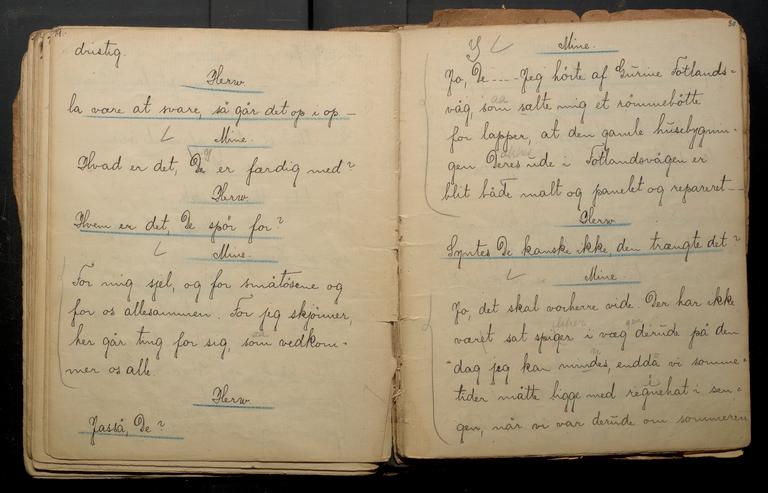 dristig.
Herw.
la være at svare, så går det op i op –
Mine.
Hvad er det, De er færdig med?
Herw.
Hvem er det, De spør for?
Mine.
For mig sjel, og for småtösene og
for os allesammen. For jeg skjönner,
her går ting for sig, som vedkom-
mer os alle.
Herw.
Jasså, De?
30
Mine.
Jo, De ---- Jeg hörte af Gurine Totlands-
våg, som salte mig et römmebötte
for lapper, at den gamle husebygnin-
gen Deres ude i Totlandsvågen er
blit både malt og panelet og reparert --
Herw.
Syntes De kanske ikke, den trængte det?
Mine.
Jo, det skal vorherre vide. Der har ikke
været sat spiger i væg derude på den
dag jeg kan mindes, enddå vi somme-
tider måtte ligge med regnehat i sen-
gen, når vi var derude om sommeren